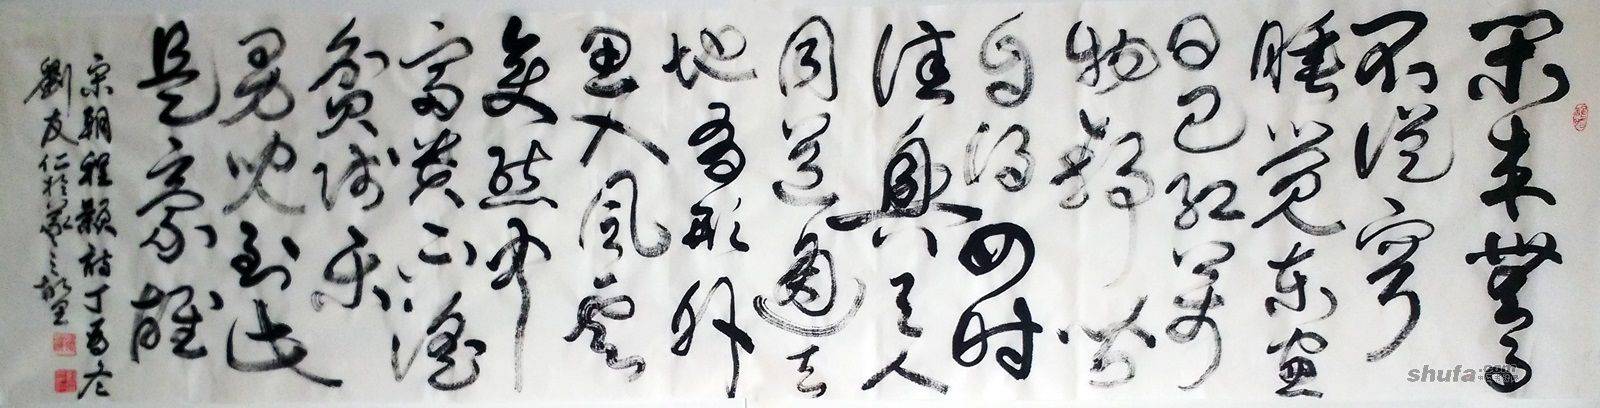 闲来無事
不從容
睡觉东窗
日已红萬
物静皆
自得四时
佳興与人
同道通天
地有形外
思入風雲
变態中
富贵不淫
贫贱乐
男兒到此
是豪雄
宋朝程颢诗丁酉冬
劉友仁於
shufa